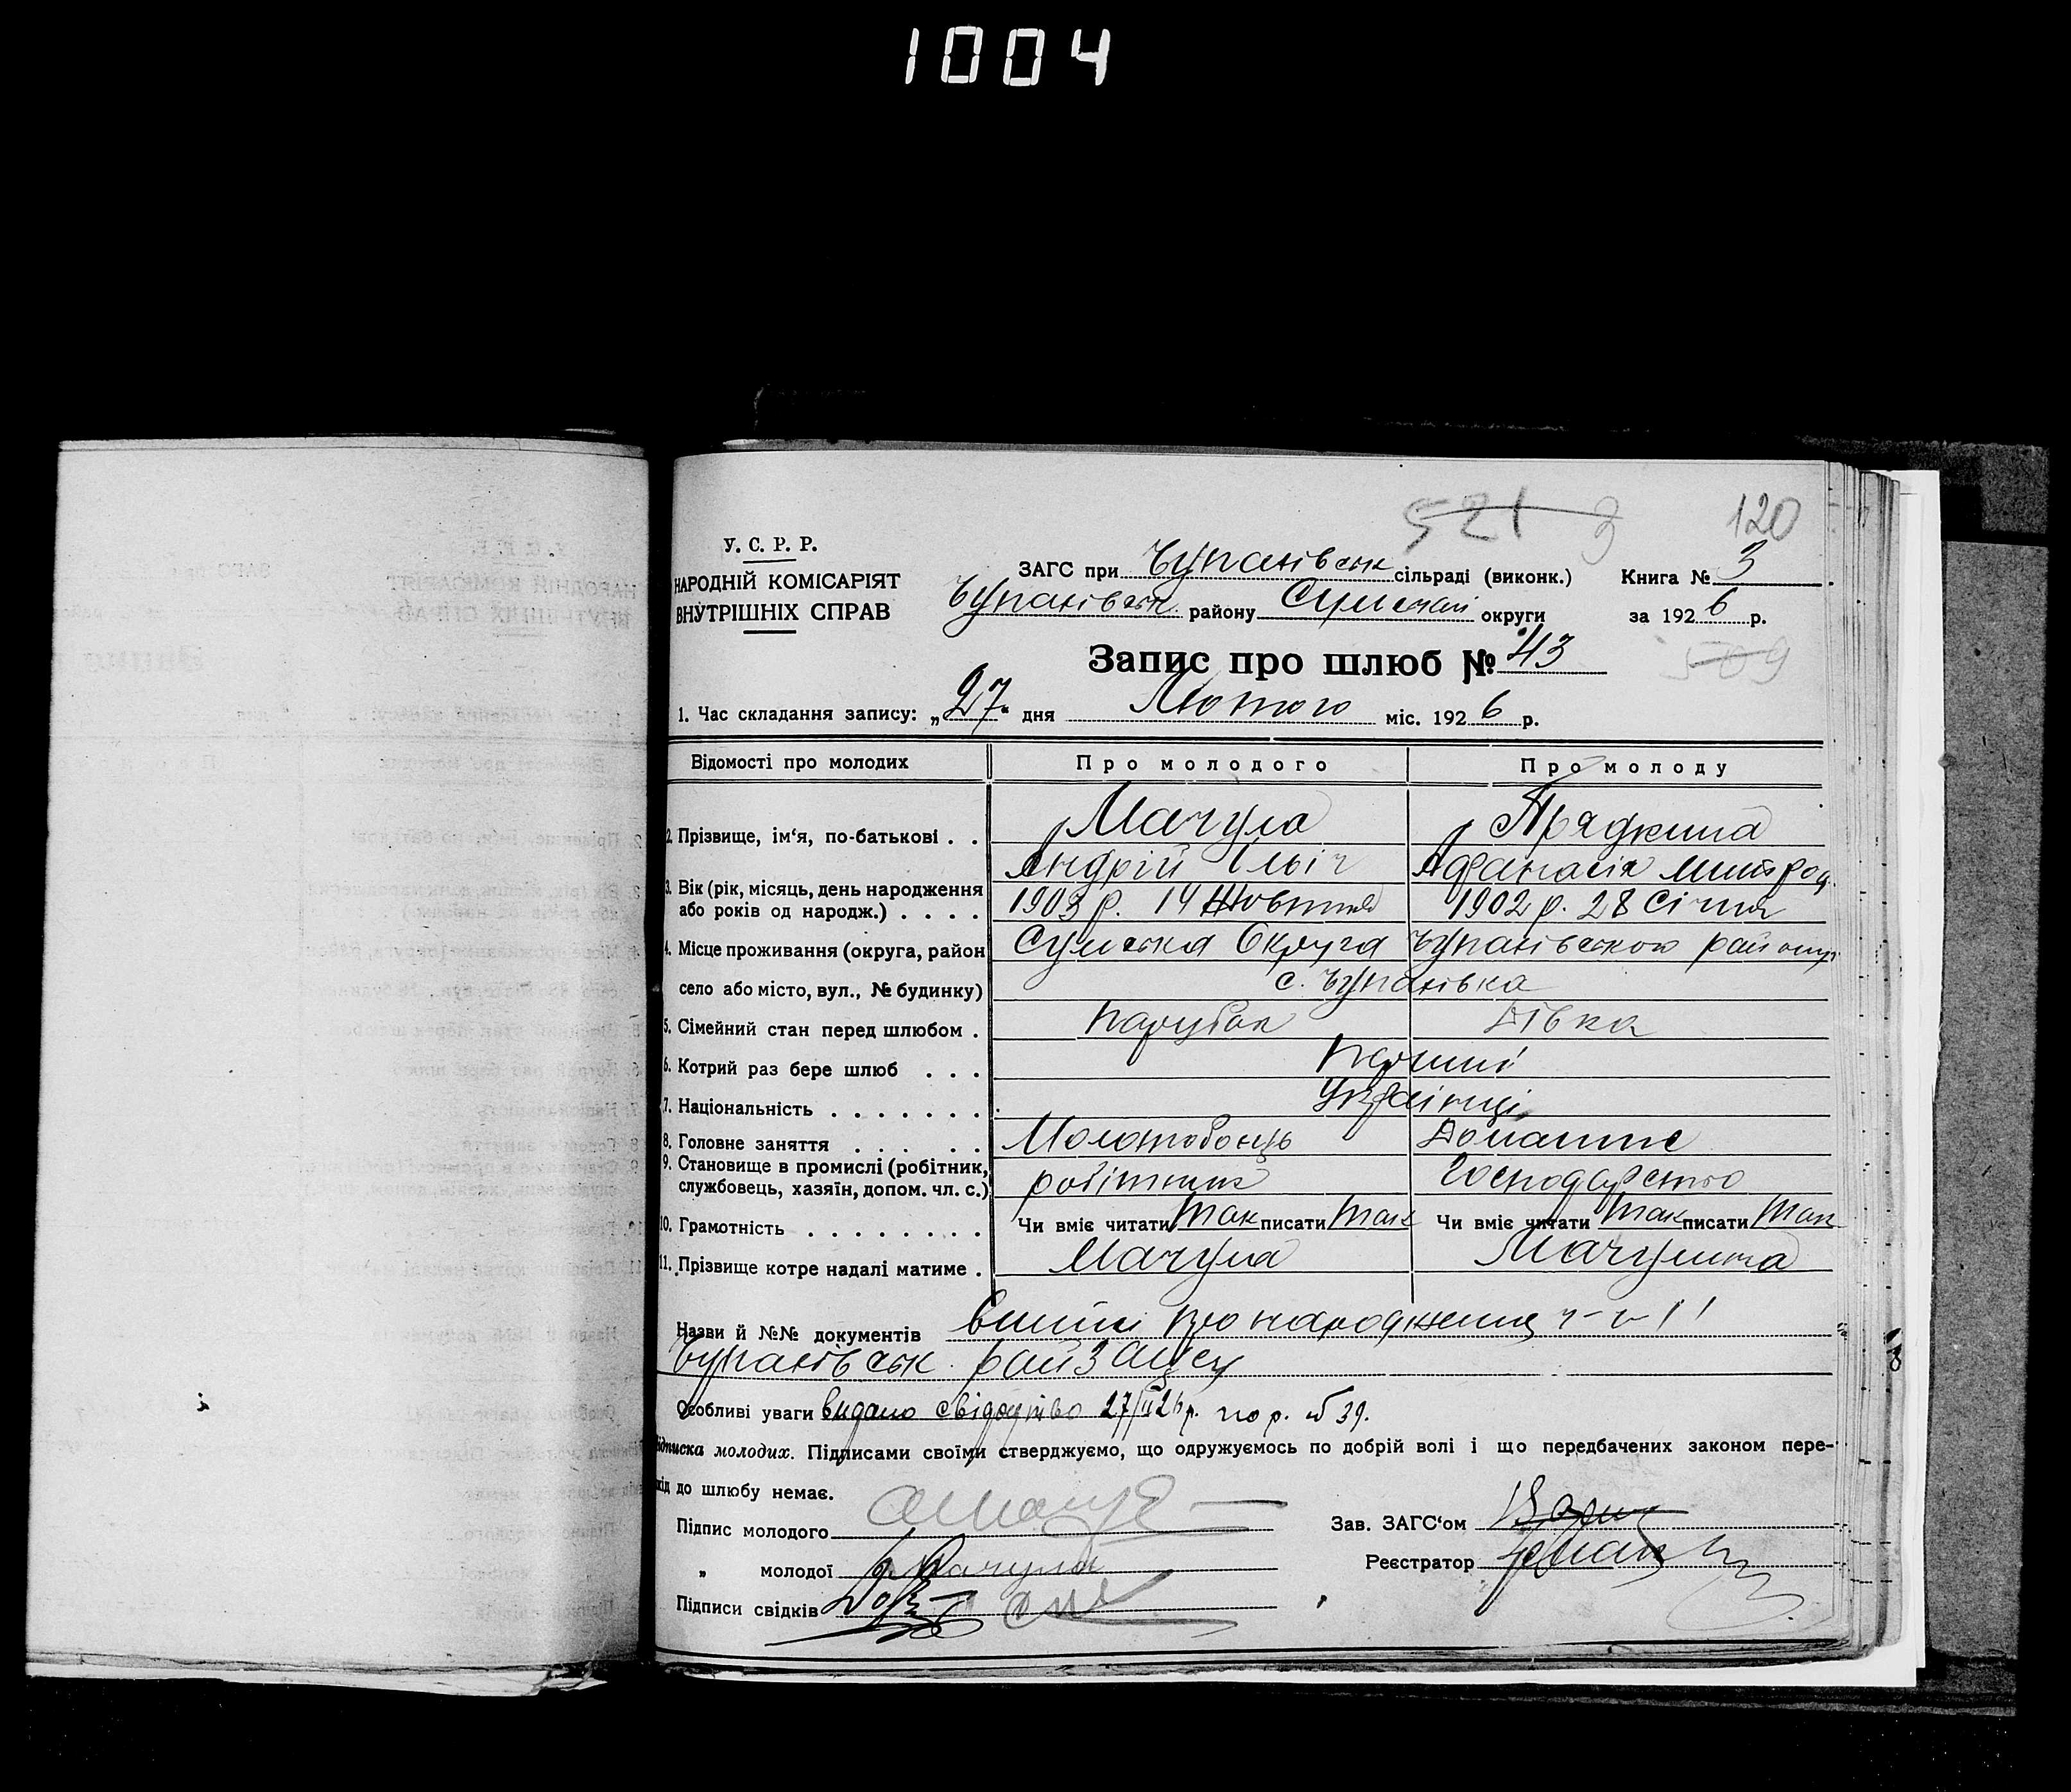 1004
521 3
120
У. С. Р. Р.
НАРОДНІЙ КОМІСАРІЯТ
ВНУТРІШНІХ СПРАВ
ЗАГС при Чупахівськ сільраді (виконк.) Книга № 3
Чупахівськ. району Сумської округи за 1926 р.
Запис про шлюб № 43
509
1. Час складання запису: „27“ дня Лютого міс. 1926 р.
Відомості про молодих Про молодого Про молоду
2. Прізвище, ім‘я, по-батькові . . Мачула Прядкина
Андрій Ільіч Афанасія Митроф.
3. Вік (рік, місяць, день народження 1903 р. 14 Жовтня 1902 р. 28 Січня
або років од народж.) . . . .
4. Місце проживання (округа, район Сумська Округа Чупахівського району
село або місто, вул., № будинку) с. Чупахівка
5. Сімейний стан перед шлюбом . Парубок Дівка
6. Котрий раз бере шлюб . . . Перший
7. Національність . . . . . . . Українці
8. Головне заняття . . . . . . Молотобоець Домашне
9. Становище в промислі (робітник, робітник Господарство
службовець, хазяїн, допом. чл. с.)
10. Грамотність . . . . . . . . Чи вміє читати так писати так Чи вміє читати так писати так
11. Прізвище котре надалі матиме . Мачула Мачулина
Назви й №№ документів виписі про народження
Чупахівськ. рай
Особливі уваги видано свідоцтво 27/II 26 р. по р. № 39.
Підписка молодих. Підписами своїми стверджуємо, що одружуємось по добрій волі і що передбачених законом пере-
код до шлюбу немає.
Підпис молодого Зав. ЗАГС‘ом
„ молодої Мачула Реєстратор
Підписи свідків